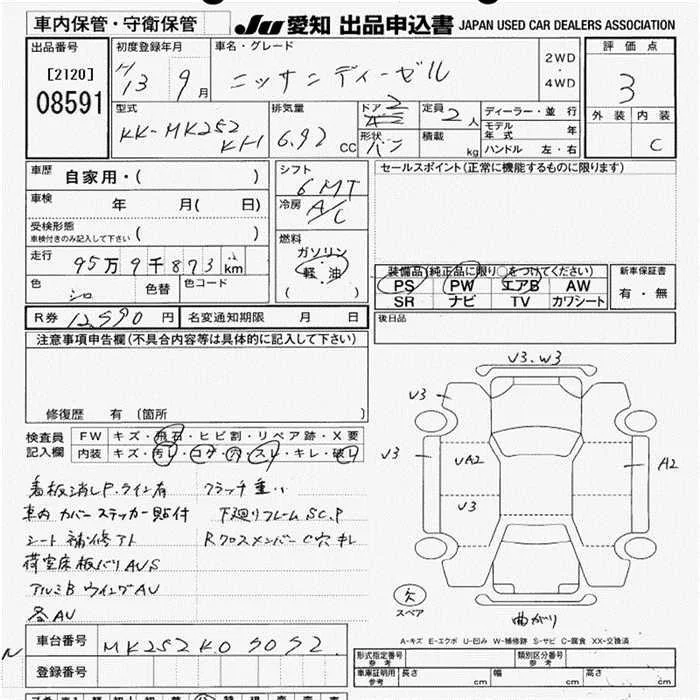 車内保管・守衛保管
JU 愛知 出品申込書 JAPAN USED CAR DEALERS ASSOCIATION
出品番号
[2120]
08591
初度登録年月
H13 9月
車名・グレード
ニッサンディーゼル
2WD・4WD
評価点
3
外装 内装
C
型式
KK-MK252KH
排気量
6.92 CC
ドア 2
形状 バン
定員 2人
積載 kg
ディーラー・並行
モデル年式 年
ハンドル 左・右
車歴 自家用・( )
車検 年 月( 日)
受検形態
車検付きのみ記入して下さい ( )
走行 95万9千873 km
色 シロ 色替 色コード
シフト
6MT
冷房 A/C
燃料
ガソリン
軽油
( )
セールスポイント(正常に機能するものに限ります)
装備品(純正品に限り○をつけてください)
PS PW エアB AW
SR ナビ TV カワシート
新車保証書
有・無
R券 12,590円 名変通知期限 月 日
後日品
注意事項申告欄(不具合内容等は具体的に記入して下さい)
修復歴 有 (箇所 )
検査員記入欄
FW キズ・飛石・ヒビ割・リペア跡・X要
内装 キズ・汚レ・コゲ・穴・スレ・キレ・破レ
看板消しP.ライン有 クラッチ重い
車内カバーステッカー貼付 下廻りフレームSC.P
シート補修アト Rクロスメンバー C穴 キレ
荷室床板バリAUS
アルミBウイングAU
各AU
U3.W3
U3
U3
UA2
U3
A2
欠
スペア
曲がり
A-キズ E-エクボ U-凹み W-補修跡 S-サビ C-腐食 XX-交換済
車台番号 MK252K0 5052
登録番号
形式指定番号 参考
類別区分番号 参考
車庫証明用 参考 長さ cm 幅 cm 高さ cm